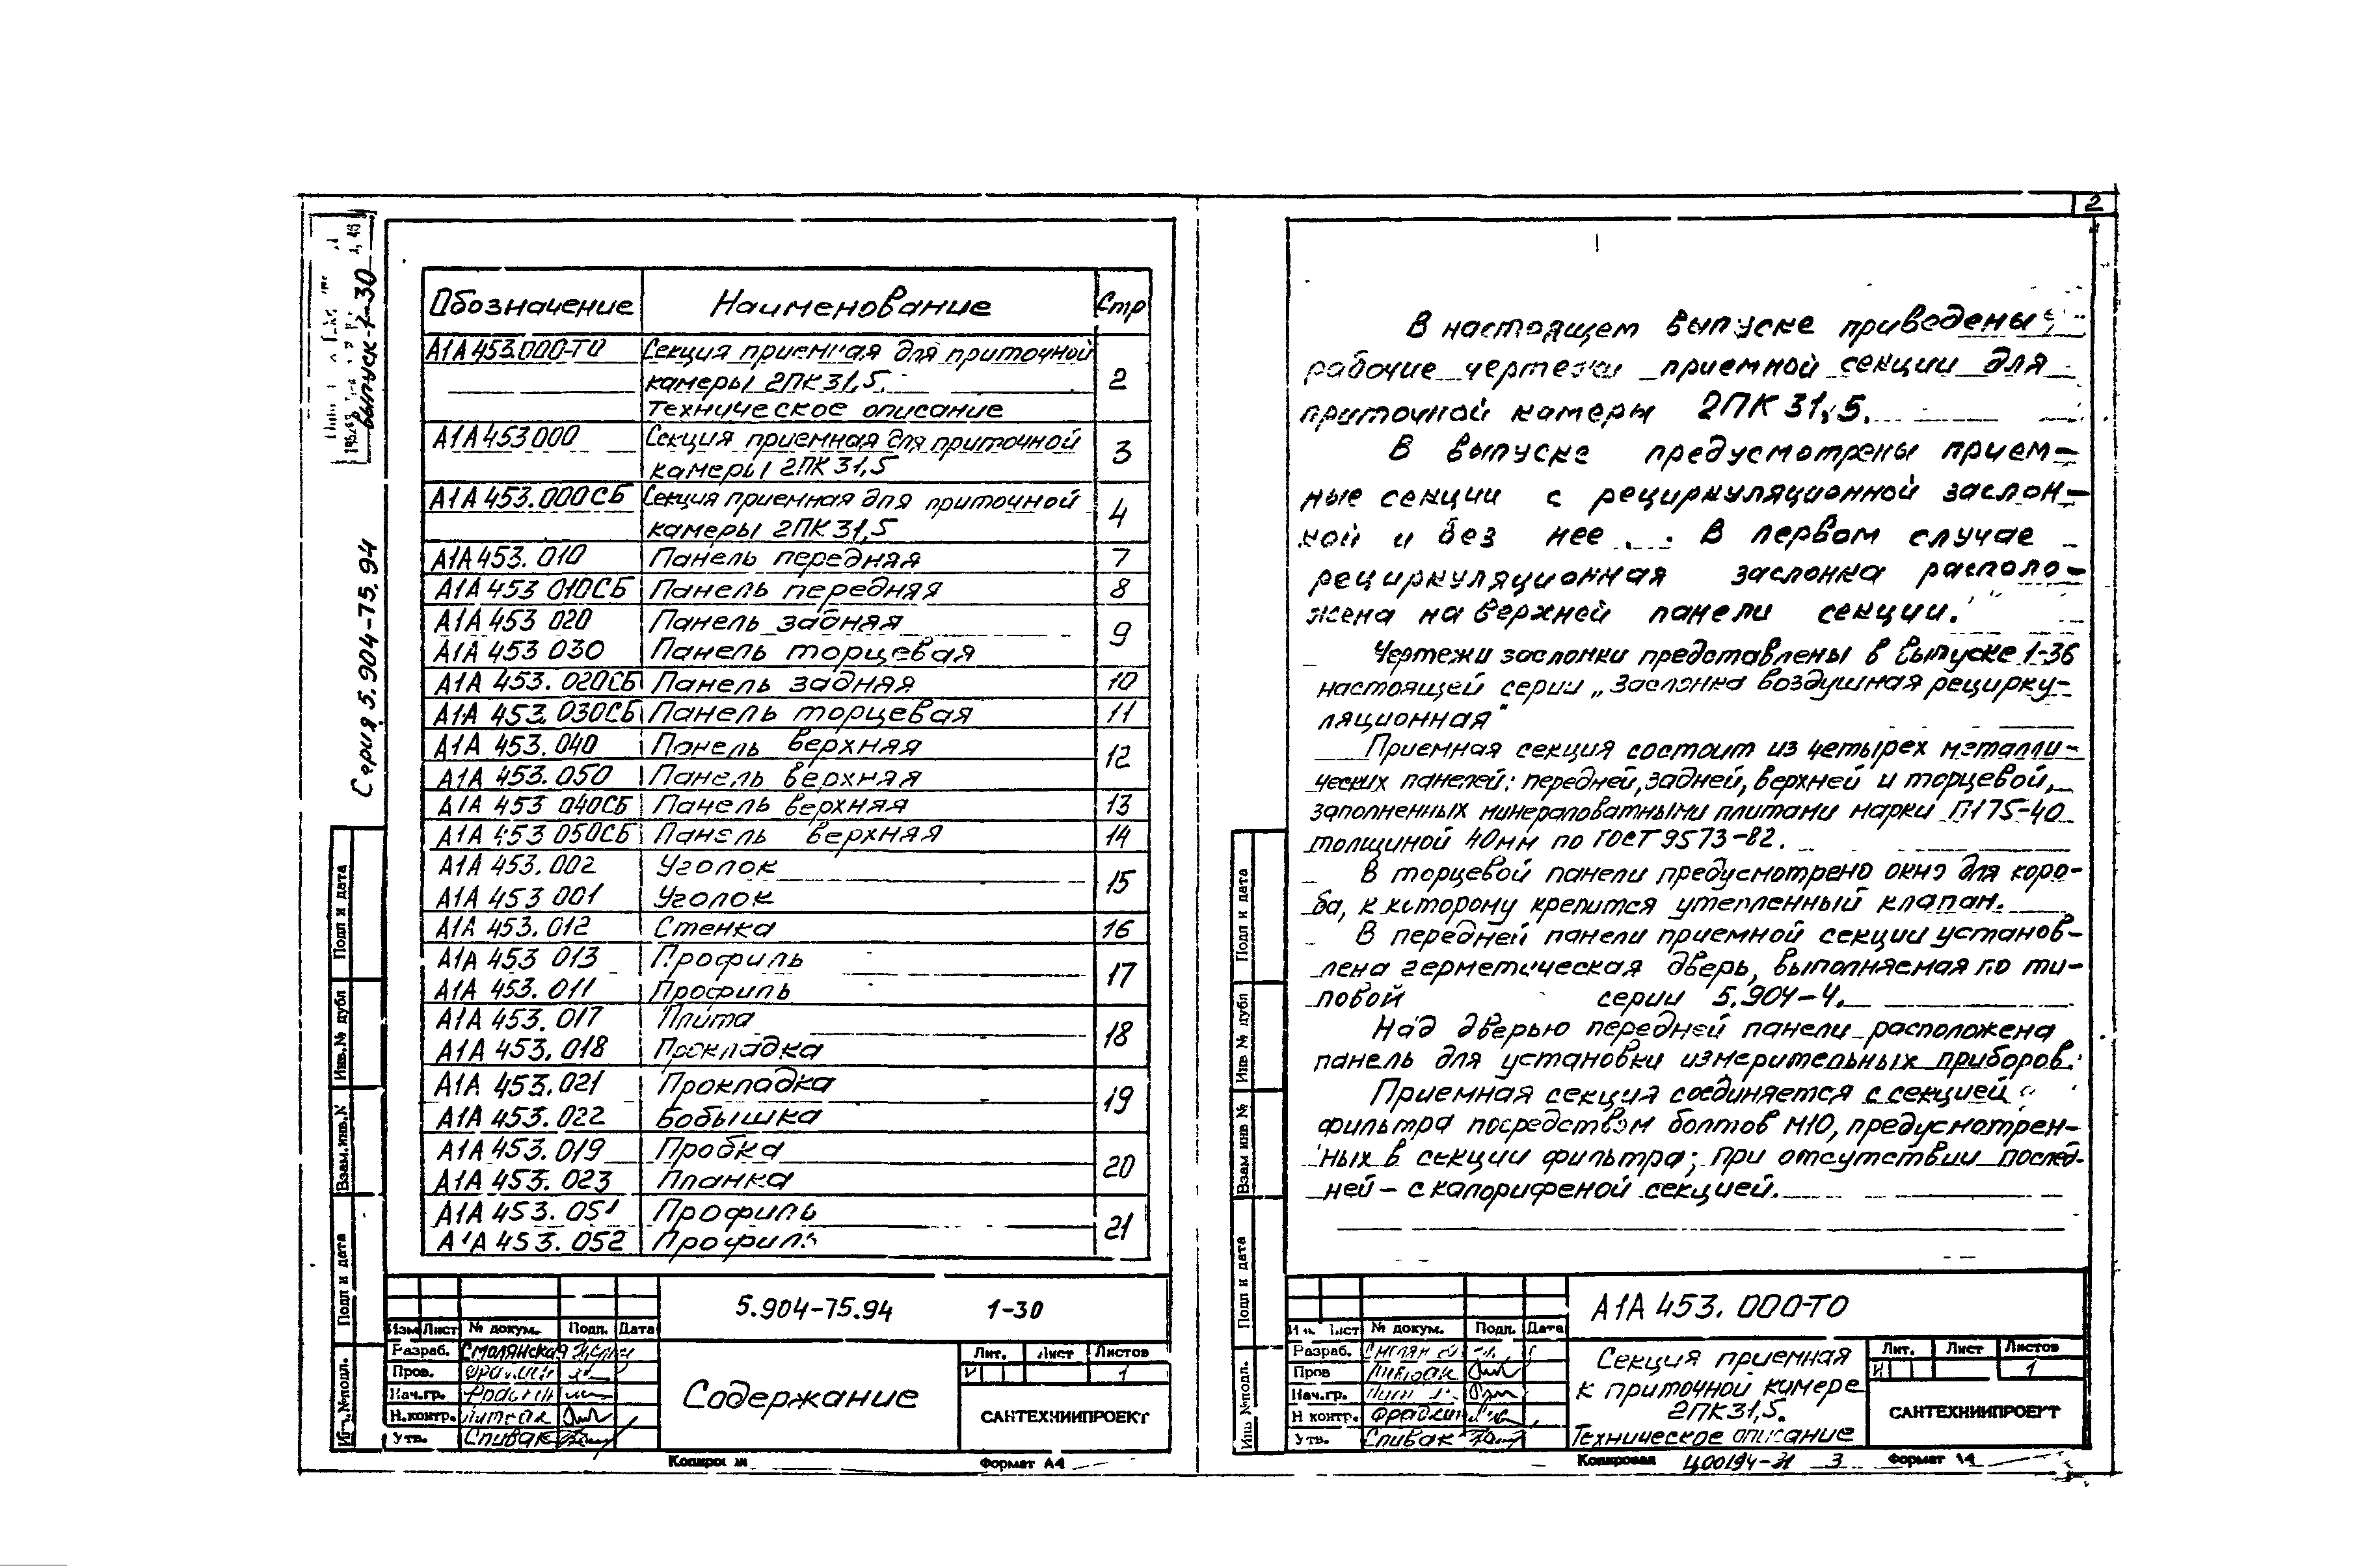 Серия 5.904-75.94
выпуск 1-30
Обозначение Наименование Стр
А1А 453.000-ТО Секция приемная для приточной
камеры 2ПК 31,5.
техническое описание 2
А1А 453 000 Секция приемная для приточной
камеры 2ПК 31,5 3
А1А 453.000СБ Секция приемная для приточной
камеры 2ПК 31,5 4
А1А 453. 010 Панель передняя 7
А1А 453 010СБ Панель передняя 8
А1А 453 020 Панель задняя 9
А1А 453 030 Панель торцевая
А1А 453. 020СБ Панель задняя 10
А1А 453. 030СБ Панель торцевая 11
А1А 453. 040 Панель верхняя 12
А1А 453. 050 Панель верхняя
А1А 453 040СБ Панель верхняя 13
А1А 453 050СБ Панель верхняя 14
А1А 453. 002 Уголок 15
А1А 453 001 Уголок
А1А 453. 012 Стенка 16
А1А 453 013 Профиль 17
А1А 453. 011 Профиль
А1А 453. 017 Плита 18
А1А 453. 018 Прокладка
А1А 453.021 Прокладка 19
А1А 453. 022 Бобышка
А1А 453. 019 Пробка 20
А1А 453. 023 Планка
А1А 453. 051 Профиль 21
А1А 453. 052 Профиль
Подп и дата
Инв.№ дубл
Взам.инв.№
Подп и дата
Инв.№подл.
5.904-75.94 1-30
Изм Лист № докум. Подп. Дата
Разраб. Смолянская
Пров.
Нач.гр.
Н.контр. Литвак
Утв. Спивак
Содержание
Лит. Лист Листов
И 1
САНТЕХНИИПРОЕКТ
Копировал
Формат А4
2
В настоящем выпуске приведены
рабочие чертежи приемной секции для
приточной камеры 2ПК 31,5.
В выпуске предусмотрены прием-
ные секции с рециркуляционной заслон-
кой и без нее. В первом случае
рециркуляционная заслонка располо-
жена на верхней панели секции.
Чертежи заслонки представлены в выпуске 1-36
настоящей серии „Заслонка воздушная рецирку-
ляционная"
Приемная секция состоит из четырех металли-
ческих панелей: передней, задней, верхней и торцевой,
заполненных минераловатными плитами марки П175-40
толщиной 40мм по ГОСТ 9573-82.
В торцевой панели предусмотрено окно для коро-
ба, к которому крепится утепленный клапан.
В передней панели приемной секции установ-
лена герметическая дверь, выполняемая по ти-
повой серии 5.904-4.
Над дверью передней панели расположена
панель для установки измерительных приборов.
Приемная секция соединяется с секцией
фильтра посредством болтов М10, предусмотрен-
ных в секции фильтра; при отсутствии послед-
ней - с калориферной секцией.
Подп и дата
Инв № дубл
Взам инв №
Подп и дата
Инв №подл.
А1А 453. 000-ТО
Лист № докум. Подп. Дата
Разраб.
Пров
Нач.гр.
Н контр. Фрадкин
Утв. Спивак
Секция приемная
к приточной камере
2ПК 31,5.
Техническое описание
Лит. Лист Листов
И 1
САНТЕХНИИПРОЕКТ
Копировал Ц00194-31 3 Формат А4